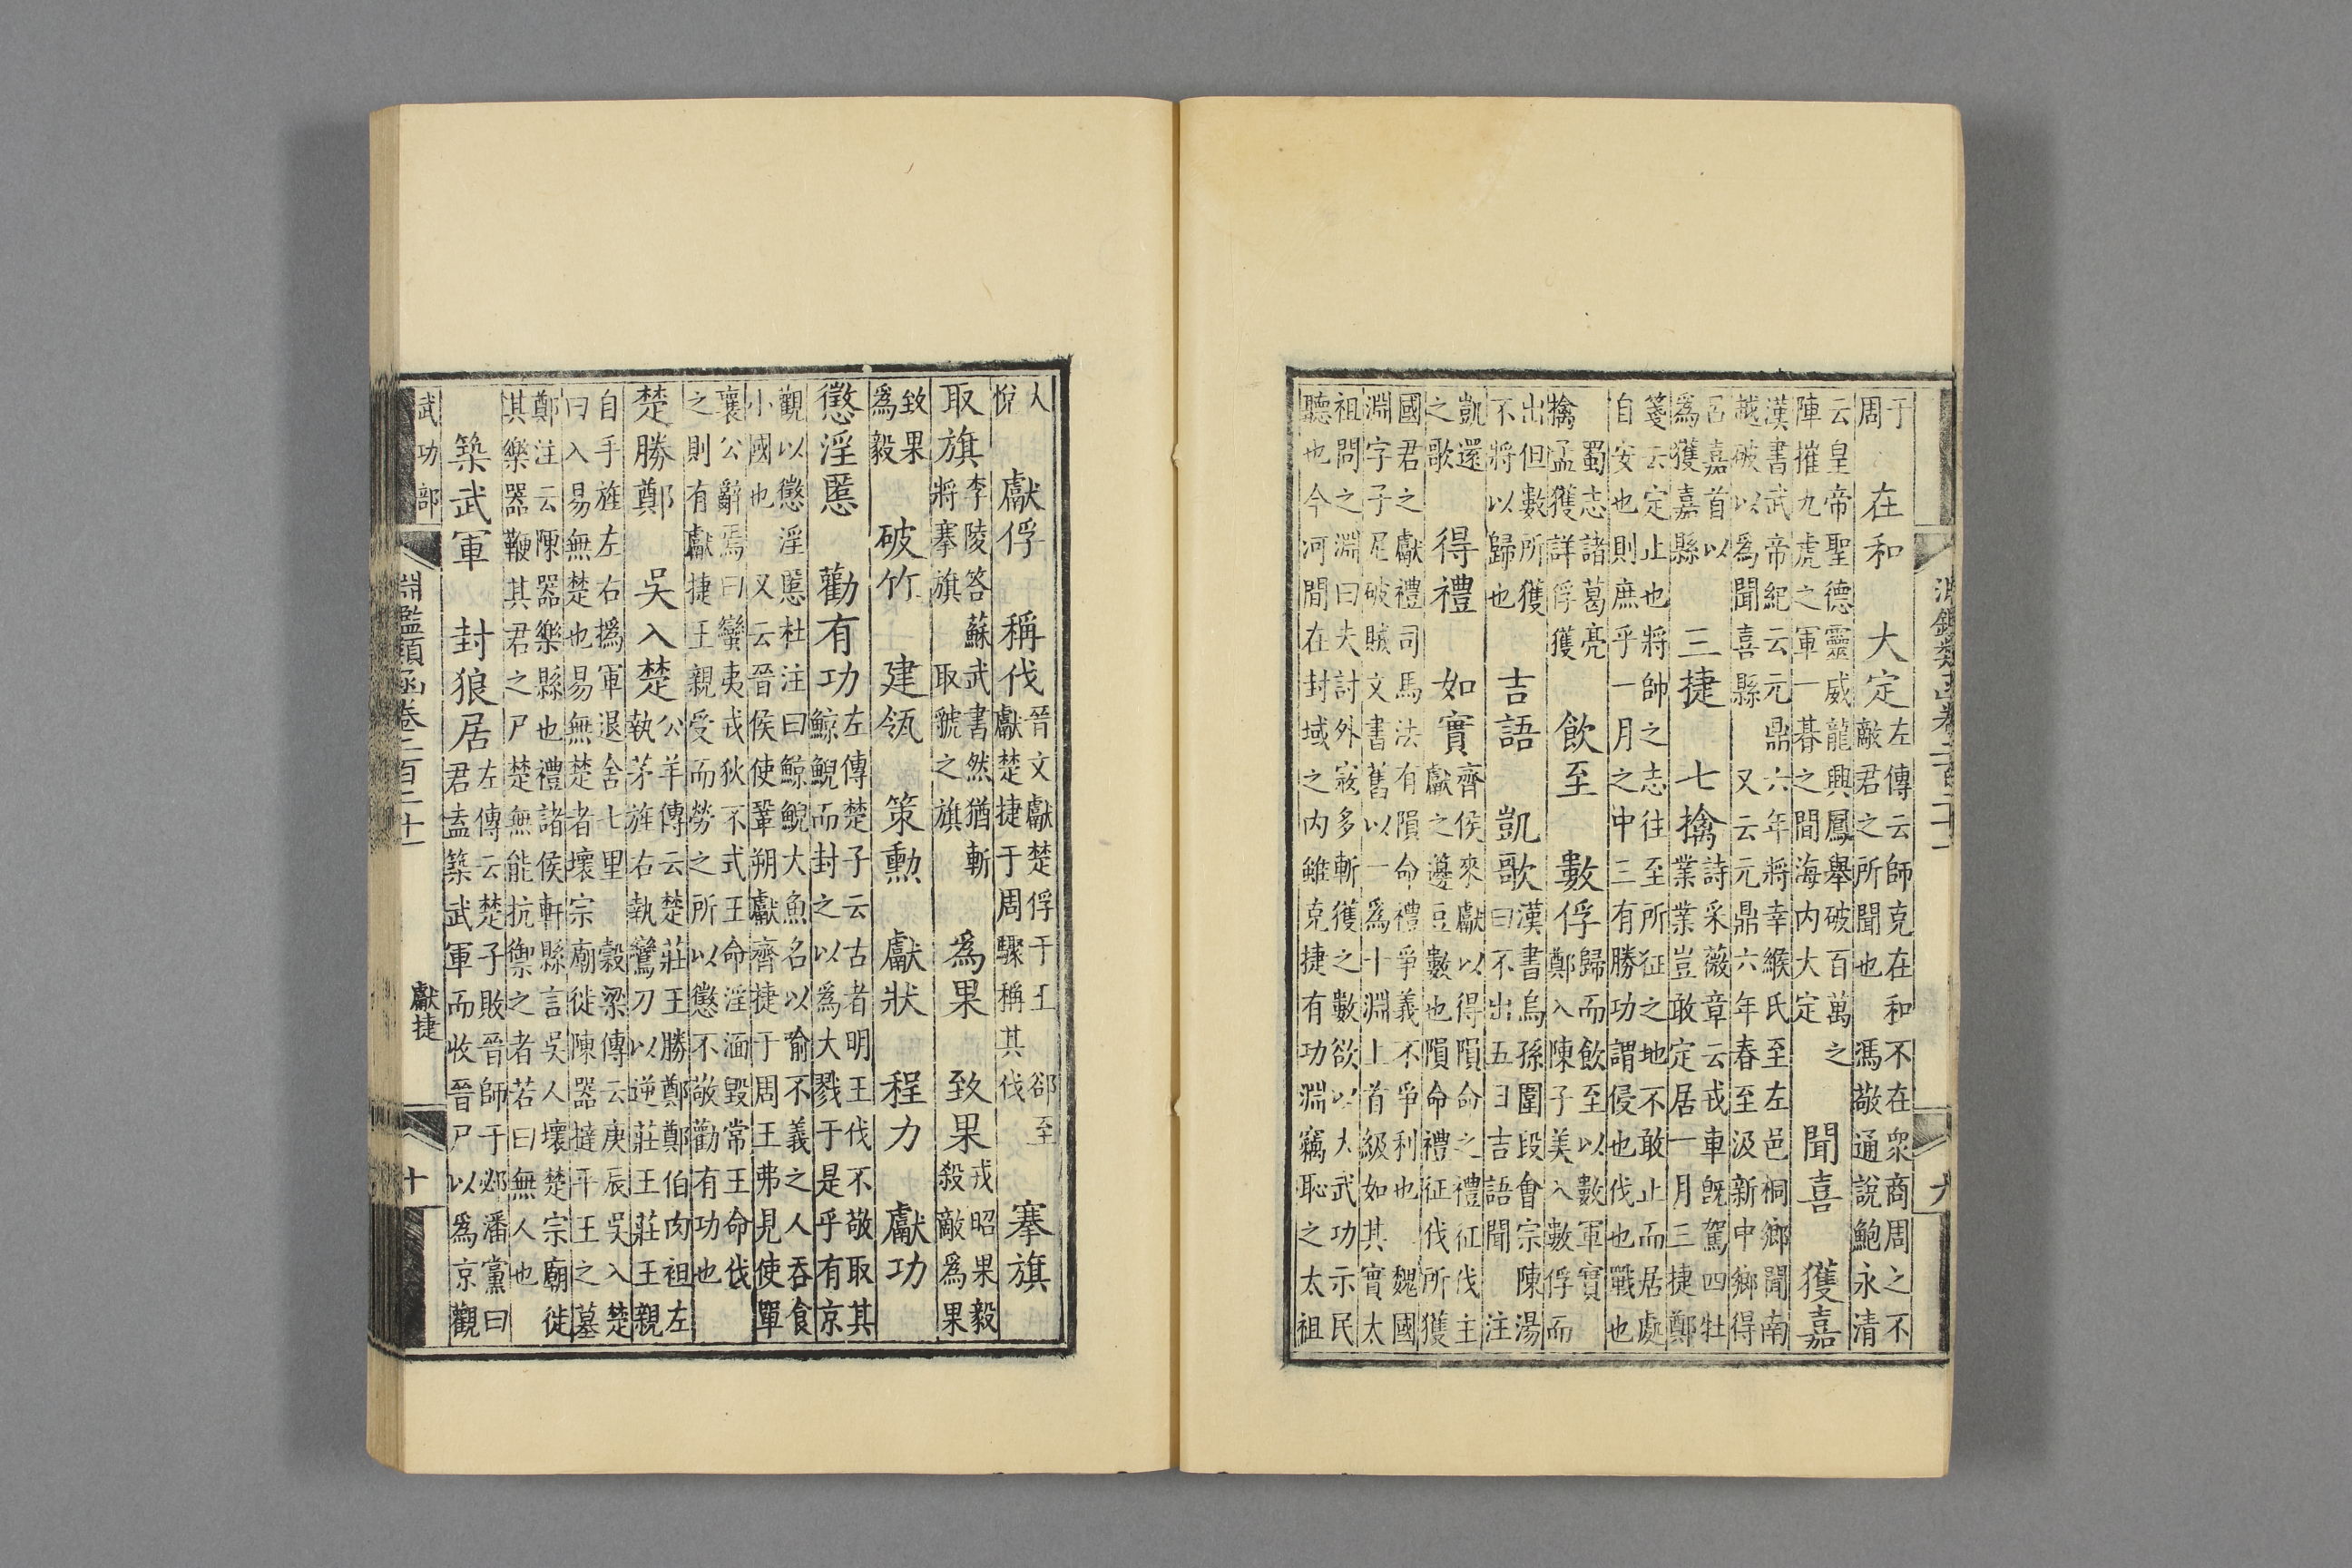 淵鑑類函卷二百二十一 九
于
周
在和　大定
左傳云師克在和　不在衆商周之不
敵君之所聞也　馮敬通說鮑永清
云皇帝聖德靈威龍興鳳舉破百萬之
陣摧九虎之軍一朞之間海内大定
聞喜　獲嘉
漢書武帝紀云元鼎六年將幸緱氏至左邑桐鄉聞南
越破以爲聞喜縣　又云元鼎六年春至汲新中鄉得
呂嘉首以
爲獲嘉縣
三捷　七擒
詩采薇章云戎車旣駕四牡
業業豈敢定居一月三捷鄭
箋云定止也將帥之志往至所征之地不敢止而居處
自安也則庶乎一月之中三有勝功謂侵也伐也戰也
蜀志諸葛亮
擒孟獲詳俘獲
飲至　數俘
歸而飲至以數軍實
鄭入陳子美入數俘而
出但數所獲
不將以歸也
吉語　凱歌
漢書烏孫圍段會宗陳湯
曰不出五日吉語聞　注
凱還
之歌
得禮　如實
齊侯來獻以得隕命之禮征伐主
獻之籩豆數也隕命禮征伐所獲
國君之獻禮司馬法有隕命禮爭義不爭利也　魏國
淵字子尼破賊文書舊以一爲十淵上首級如其實太
祖問之淵曰夫討外寇多斬獲之數欲以大武功示民
聽也今河間在封域之内雖克捷有功淵竊恥之太祖
人
悅
獻俘　稱伐
晉文獻楚俘于王　郤至
獻楚捷于周驟稱其伐
搴旗
取旗
李陵答蘇武書然猶斬
將搴旗　取虢之旗
爲果　致果
戎昭果毅
殺敵爲果
致果
爲毅
破竹　建瓴　策勳　獻狀　程力　獻功
懲淫慝　勸有功
左傳楚子云古者明王伐不敬取其
鯨鯢而封之以爲大戮于是乎有京
觀以懲淫慝杜注曰鯨鯢大魚名以喻不義之人吞食
小國也　又云晉侯使鞏朔獻齊捷于周王弗見使單
襄公辭焉曰蠻夷戎狄不式王命淫湎毀常王命伐
之則有獻捷王親受而勞之所以懲不敬勸有功也
楚勝鄭　吳入楚
公羊傳云楚莊王勝鄭鄭伯肉袒左
執茅旌右執鸞刀以逆莊王莊王親
自手旌左右撝軍退舍七里　穀梁傳云庚辰吳入楚
曰入易無楚也易無楚者壞宗廟徙陳器撻平王之墓
鄭注云陳器樂縣也禮諸侯軒縣言吳人壞楚宗廟徙
其樂器鞭其君之尸楚無能抗禦之者若曰無人也
築武軍　封狼居
左傳云楚子敗晉師于邲潘黨曰
君盍築武軍而收晉尸以爲京觀
武功部　淵鑑類函卷二百二十一　獻捷　十